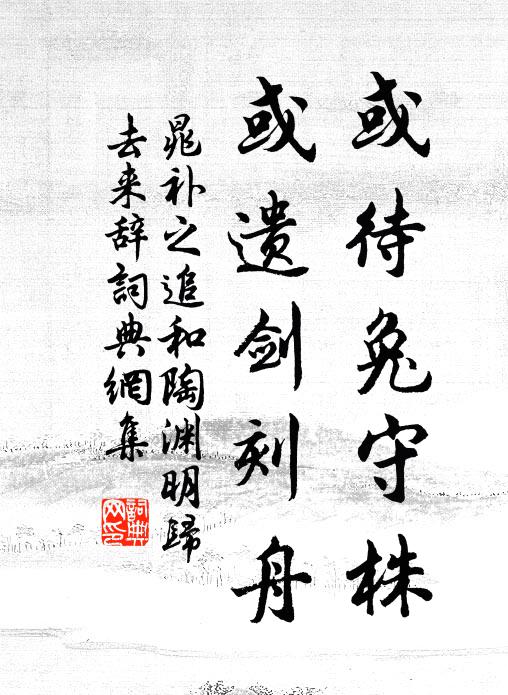 或待兔守株
或遗剑刻舟
晁补之追和陶渊明歸
去来辞詞典網集
詞典
网